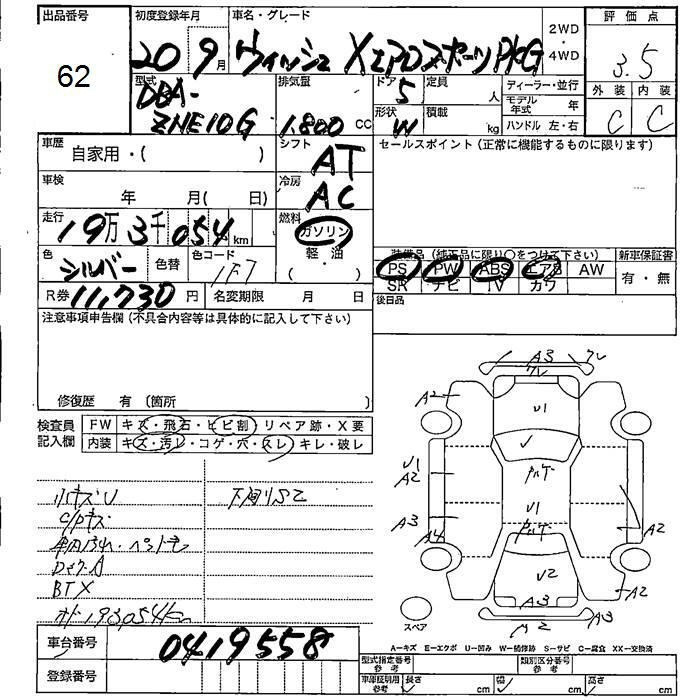 出品番号 初度登録年月 車名・グレード 2WD・4WD 評価点
62 20 9月 ウィッシュ XエアロスポーツPKG 3.5
型式 排気量 ドア 定員 ディーラー・並行 外装 内装
DBA-ZNE10G 1.800 CC 5 人 モデル年式 年 C C
形状 積載 ハンドル 左・右
W kg
車歴 自家用・( ) シフト AT セールスポイント(正常に機能するものに限ります)
車検 年 月( 日) 冷房 AC
走行 19万3千054km 燃料 ガソリン 軽・油 (・)
装備品(純正品に限り〇をつけて下さい) 新車保証書
色 シルバー 色替 色コード 1F7 PS PW ABS エアB AW 有・無
SR ナビ TV カワ
R券 11,730円 名変期限 月 日 後日品
注意事項申告欄(不具合内容等は具体的に記入して下さい)
修復歴 有(箇所 )
検査員記入欄 FW キズ・飛石・ヒビ割 リペア跡・X要
内装 キズ・汚レ・コゲ・穴・スレ・キレ・破レ
小キズU 下廻りS2
C/Pキズ
BTX
193054km
A3 ワレ
A2 U1
U1 A2
A3 U1
A4 A2
U2 A2
A3 A3
スペア
A-キズ E-エクボ U-凹み W-補修跡 S-サビ C-腐食 XX-交換済
車台番号 0419558
登録番号
型式指定番号 参考 類別区分番号 参考
車庫証明用 参考 長さ cm 幅 cm 高さ cm